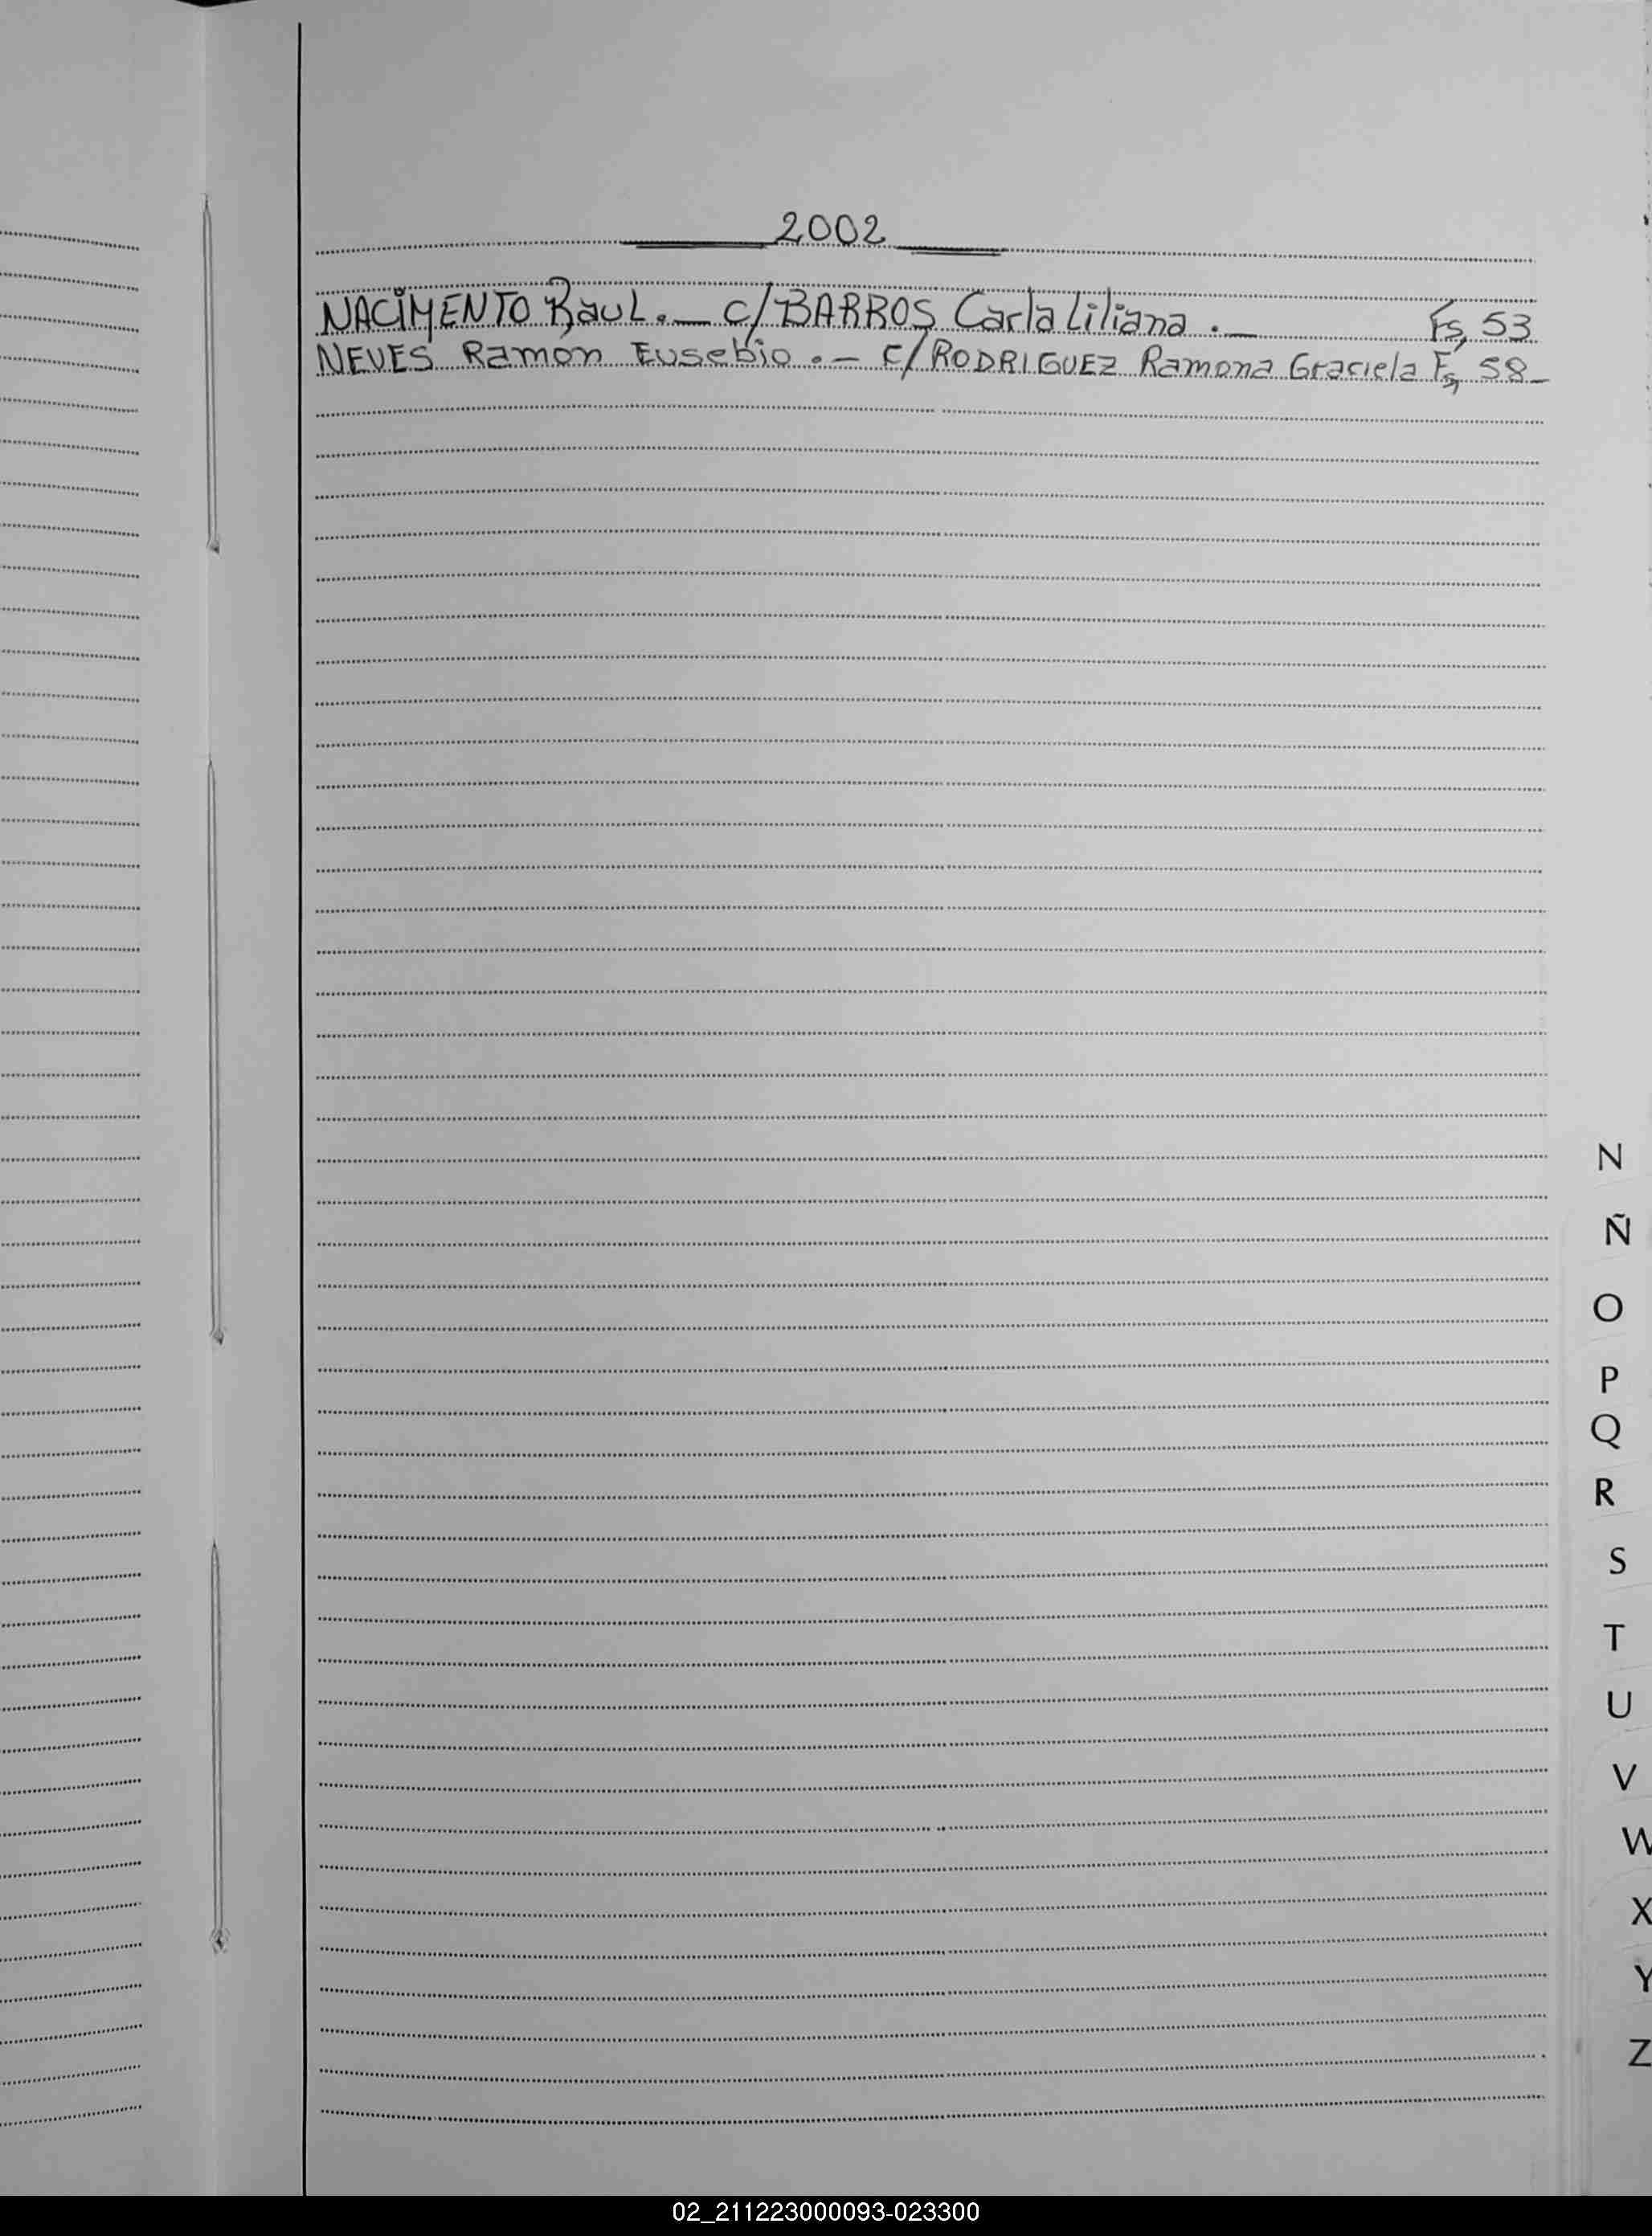 2002
NACIMENTO Raul. — c/BARROS Carla Liliana . — Fs, 53
NEVES Ramon Eusebio . — c/RODRIGUEZ Ramona Graciela Fs, 58 —
N
Ñ
O
P
Q
R
S
T
U
V
W
X
Y
Z
02_211223000093-023300